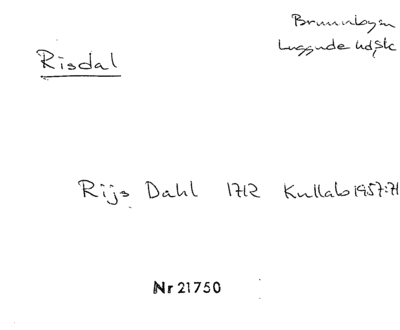 Brunnbyån
Luggude hd, Sk
Risdal
Rijs Dahl 1712 Kullab 1957:71
Nr 21750